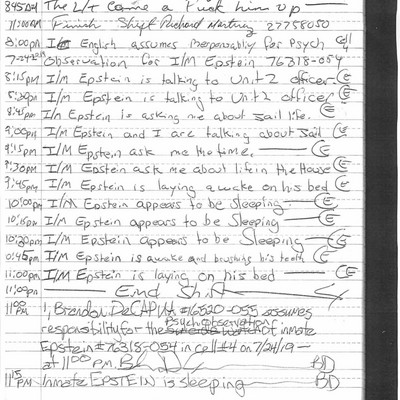 8:45AM The L/T came & Pick him up
11:00AM Finish Shift Richard 27758050
8:00pm I/M English assumes responsability for Psych Cell 4
7-24-2019 Observation for I/M Epstein 76318-054
8:15pm I/M Epstein is talking to Unit 2 officer CE
8:30pm I/M Epstein is talking to Unit 2 officer CE
8:45pm I/m Epstein is asking me about Jail life. CE
9:00pm I/M Epstein and I are talking about Jail CE
9:15pm I/M Epstein ask me the time. CE
9:30pm I/M Epstein ask me about life in the House CE
9:45pm I/M Epstein is laying awake on his bed CE
10:00pm I/M Epstein appears to be Sleeping. CE
10:15pm I/M Epstein appears to be Sleeping CE
10:30pm I/M Epstein appears to be Sleeping CE
10:45pm I/M Epstein is awake and brushing his teeth CE
11:00pm I/M Epstein is laying on his bed CE
11:00pm End Shift
11:00 PM I, Brendon DeCAPUA #16520-055 assumes
Psych Observation
responsability for the of inmate
Epstein #76318-054 in cell #4 on 7/24/19
at 11:00 P.M. BD
11:15 PM Inmate EPSTEIN is sleeping BD